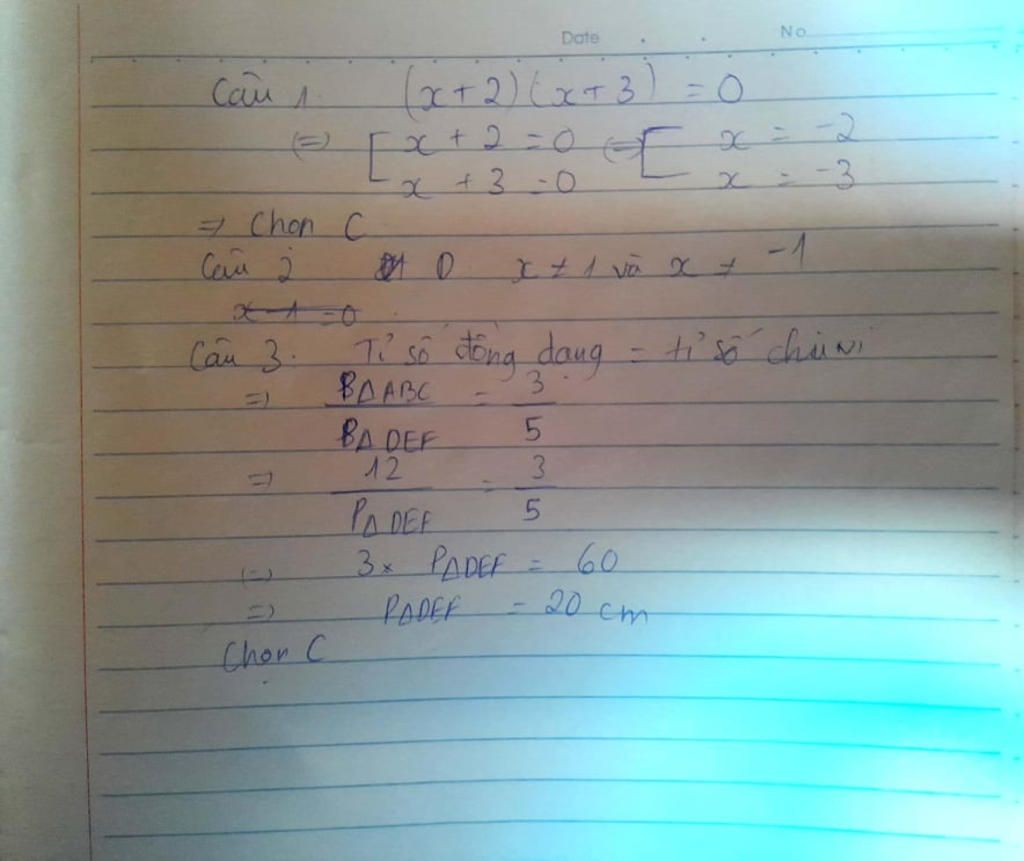 Date . . No
Câu 1. (x+2)(x+3) = 0
(=) [ x + 2 = 0 (=) [ x = -2
x + 3 = 0 x = -3
=> Chọn C
Câu 2 D x ≠ 1 và x ≠ -1
x - 1 = 0
Câu 3. Tỉ số đồng dạng = tỉ số chu vi
=> PΔABC = 3
PΔDEF 5
=> 12 = 3
PΔDEF 5
(=) 3x PΔDEF = 60
=> PΔDEF = 20 cm
Chọn C